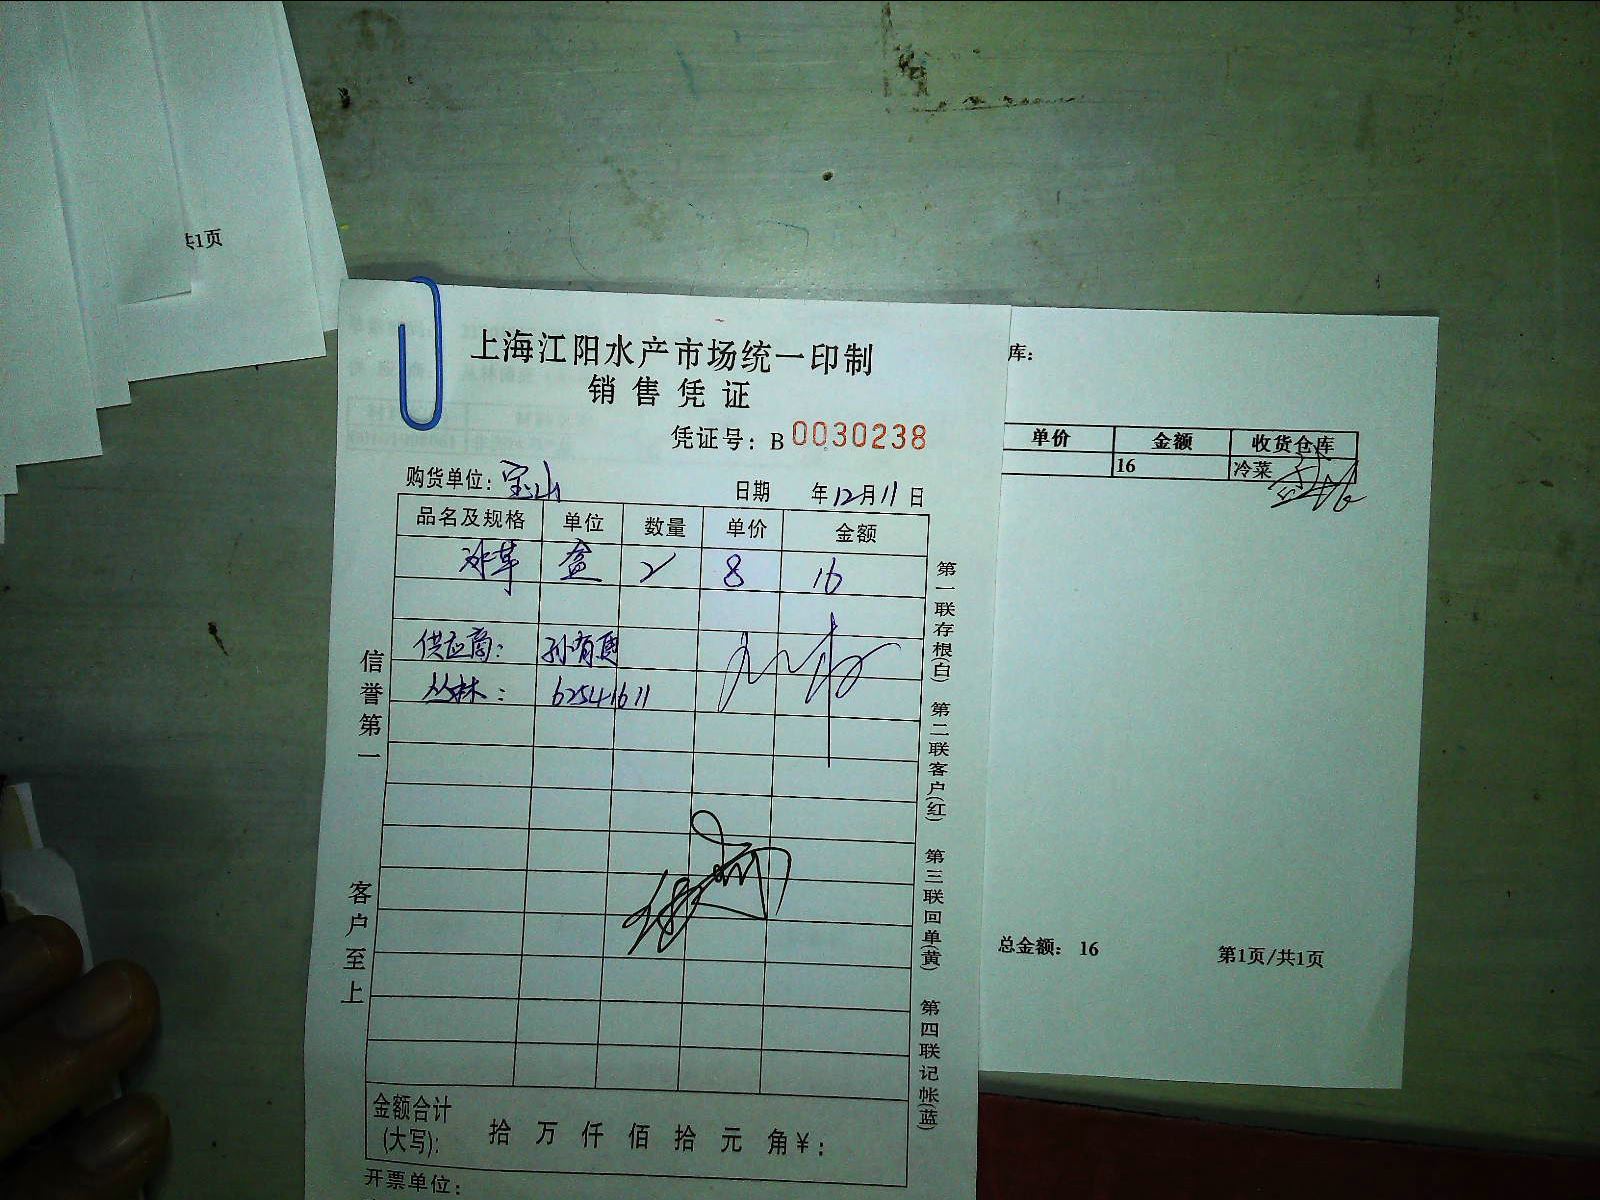 共1页
上海江阳水产市场统一印制
销售凭证
凭证号：B 0030238
购货单位：宝山 日期 年12月11日
品名及规格 单位 数量 单价 金额
冰草 盒 2 8 16
供应商：孙有
丛林：62541611
信誉第一
客户至上
第一联存根(白) 第二联客户(红) 第三联回单(黄) 第四联记帐(蓝)
金额合计
(大写)： 拾 万 仟 佰 拾 元 角 ¥：
开票单位：
库：
单价 金额 收货仓库
16 冷菜
总金额： 16 第1页/共1页